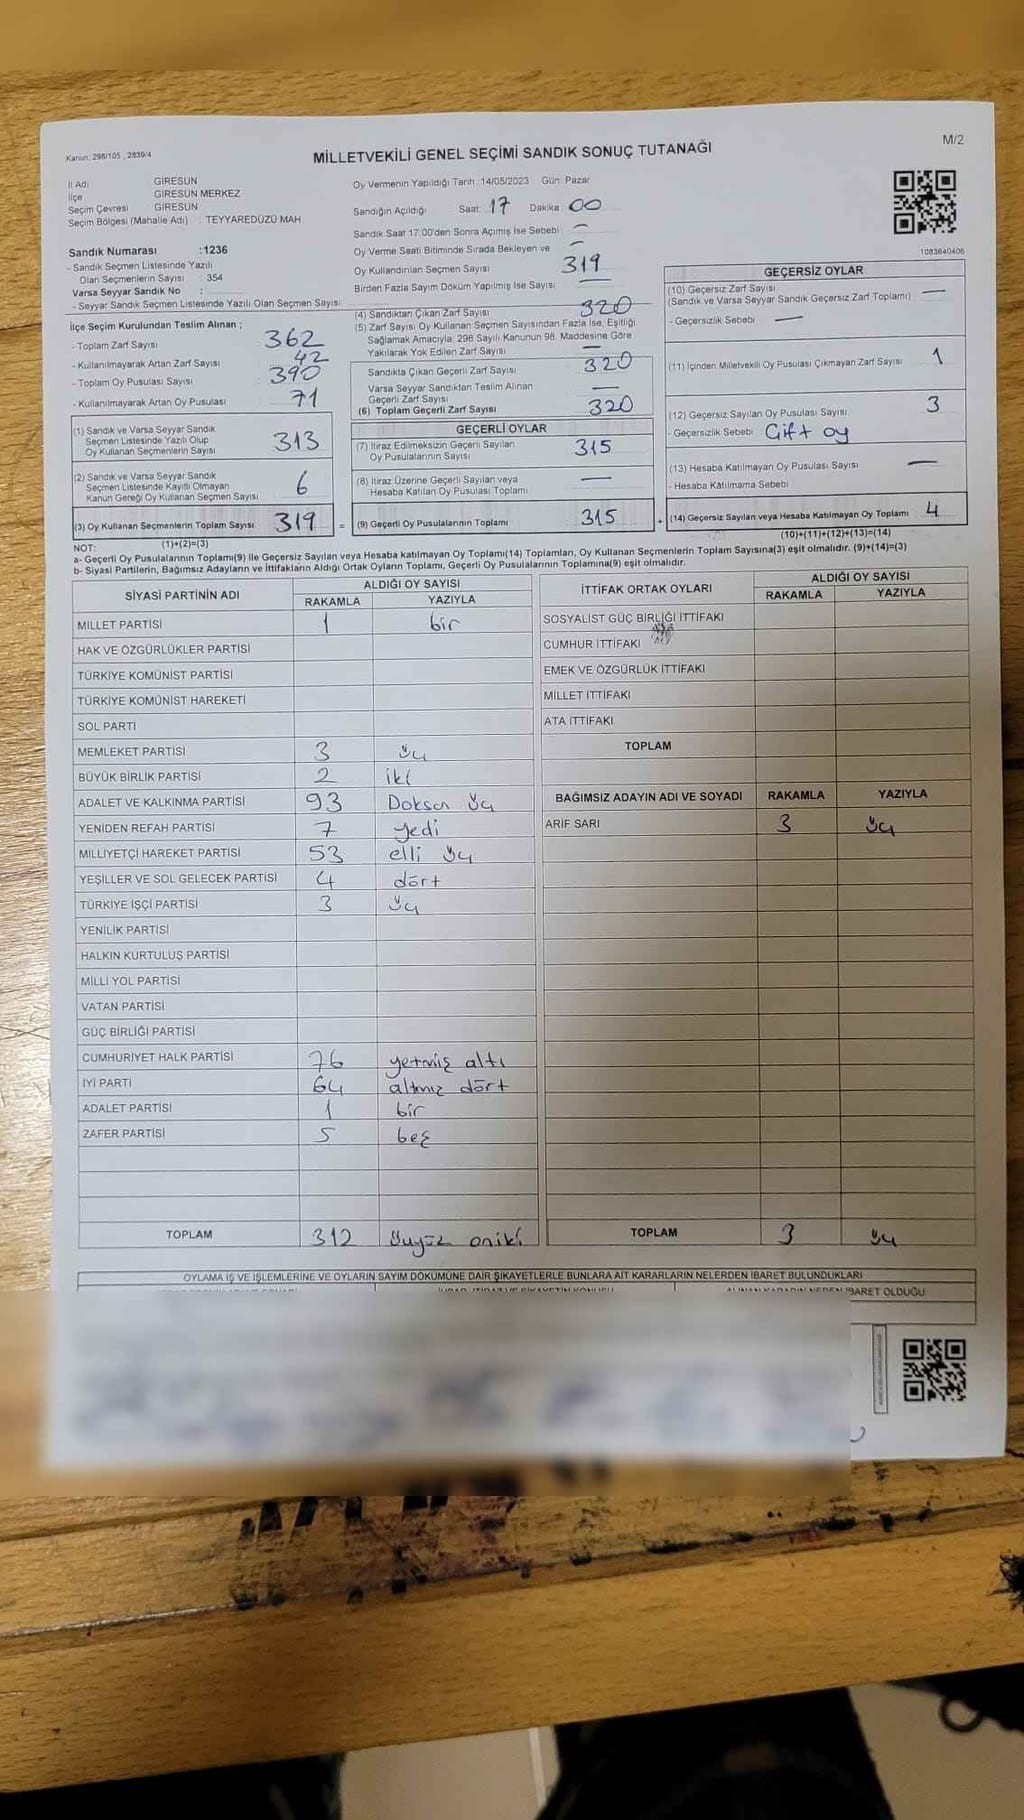 Kanun: 298/105 , 2839/4
MİLLETVEKİLİ GENEL SEÇİMİ SANDIK SONUÇ TUTANAĞI
M/2
İl Adı GİRESUN
İlçe GİRESUN MERKEZ
Seçim Çevresi GİRESUN
Seçim Bölgesi (Mahalle Adı) : TEYYAREDÜZÜ MAH.
Sandık Numarası :1236
- Sandık Seçmen Listesinde Yazılı
Olan Seçmenlerin Sayısı : 354
Varsa Seyyar Sandık No :
- Seyyar Sandık Seçmen Listesinde Yazılı Olan Seçmen Sayısı
Oy Vermenin Yapıldığı Tarih :14/05/2023 Gün: Pazar
Sandığın Açıldığı Saat: 17 Dakika 00
Sandık Saat 17:00'den Sonra Açılmış İse Sebebi : —
Oy Verme Saati Bitiminde Sırada Bekleyen ve —
Oy Kullandırılan Seçmen Sayısı 319
Birden Fazla Sayım Döküm Yapılmış İse Sayısı —
1083640406
İlçe Seçim Kurulundan Teslim Alınan ;
- Toplam Zarf Sayısı 362
- Kullanılmayarak Artan Zarf Sayısı 42
- Toplam Oy Pusulası Sayısı 390
- Kullanılmayarak Artan Oy Pusulası 71
(1) Sandık ve Varsa Seyyar Sandık
Seçmen Listesinde Yazılı Olup
Oy Kullanan Seçmenlerin Sayısı 313
(2) Sandık ve Varsa Seyyar Sandık
Seçmen Listesinde Kayıtlı Olmayan
Kanun Gereği Oy Kullanan Seçmen Sayısı 6
(3) Oy Kullanan Seçmenlerin Toplam Sayısı 319 =
(1)+(2)=(3)
(4) Sandıktan Çıkan Zarf Sayısı 320
(5) Zarf Sayısı Oy Kullanan Seçmen Sayısından Fazla İse, Eşitliği
Sağlamak Amacıyla: 298 Sayılı Kanunun 98. Maddesine Göre
Yakılarak Yok Edilen Zarf Sayısı —
Sandıkta Çıkan Geçerli Zarf Sayısı 320
Varsa Seyyar Sandıktan Teslim Alınan
Geçerli Zarf Sayısı —
(6) Toplam Geçerli Zarf Sayısı 320
GEÇERLİ OYLAR
(7) İtiraz Edilmeksizin Geçerli Sayılan
Oy Pusulalarının Sayısı 315
(8) İtiraz Üzerine Geçerli Sayılan veya
Hesaba Katılan Oy Pusulası Toplamı —
(9) Geçerli Oy Pusulalarının Toplamı 315 +
GEÇERSİZ OYLAR
(10) Geçersiz Zarf Sayısı —
(Sandık ve Varsa Seyyar Sandık Geçersiz Zarf Toplamı)
- Geçersizlik Sebebi : —
(11) İçinden Milletvekili Oy Pusulası Çıkmayan Zarf Sayısı 1
(12) Geçersiz Sayılan Oy Pusulası Sayısı 3
- Geçersizlik Sebebi Çift oy
(13) Hesaba Katılmayan Oy Pusulası Sayısı —
- Hesaba Katılmama Sebebi
(14) Geçersiz Sayılan veya Hesaba Katılmayan Oy Toplamı 4
(10)+(11)+(12)+(13)=(14)
NOT:
a- Geçerli Oy Pusulalarının Toplamı(9) ile Geçersiz Sayılan veya Hesaba katılmayan Oy Toplamı(14) Toplamları, Oy Kullanan Seçmenlerin Toplam Sayısına(3) eşit olmalıdır. (9)+(14)=(3)
b- Siyasi Partilerin, Bağımsız Adayların ve İttifakların Aldığı Ortak Oyların Toplamı, Geçerli Oy Pusulalarının Toplamına(9) eşit olmalıdır.
SİYASİ PARTİNİN ADI ALDIĞI OY SAYISI
RAKAMLA YAZIYLA
MİLLET PARTİSİ 1 bir
HAK VE ÖZGÜRLÜKLER PARTİSİ
TÜRKİYE KOMÜNİST PARTİSİ
TÜRKİYE KOMÜNİST HAREKETİ
SOL PARTİ
MEMLEKET PARTİSİ 3 üç
BÜYÜK BİRLİK PARTİSİ 2 iki
ADALET VE KALKINMA PARTİSİ 93 Doksan üç
YENİDEN REFAH PARTİSİ 7 yedi
MİLLİYETÇİ HAREKET PARTİSİ 53 elli üç
YEŞİLLER VE SOL GELECEK PARTİSİ 4 dört
TÜRKİYE İŞÇİ PARTİSİ 3 üç
YENİLİK PARTİSİ
HALKIN KURTULUŞ PARTİSİ
MİLLİ YOL PARTİSİ
VATAN PARTİSİ
GÜÇ BİRLİĞİ PARTİSİ
CUMHURİYET HALK PARTİSİ 76 yetmiş altı
İYİ PARTİ 64 altmız dört
ADALET PARTİSİ 1 bir
ZAFER PARTİSİ 5 beş
TOPLAM 312 üçyüz oniki
İTTİFAK ORTAK OYLARI ALDIĞI OY SAYISI
RAKAMLA YAZIYLA
SOSYALİST GÜÇ BİRLİĞİ İTTİFAKI
CUMHUR İTTİFAKI
EMEK VE ÖZGÜRLÜK İTTİFAKI
MİLLET İTTİFAKI
ATA İTTİFAKI
TOPLAM
BAĞIMSIZ ADAYIN ADI VE SOYADI RAKAMLA YAZIYLA
ARİF SARI 3 üç
TOPLAM 3 üç
OYLAMA İŞ VE İŞLEMLERİNE VE OYLARIN SAYIM DÖKÜMÜNE DAİR ŞİKAYETLERLE BUNLARA AİT KARARLARIN NELERDEN İBARET BULUNDUKLARI
İBARET OLDUĞU